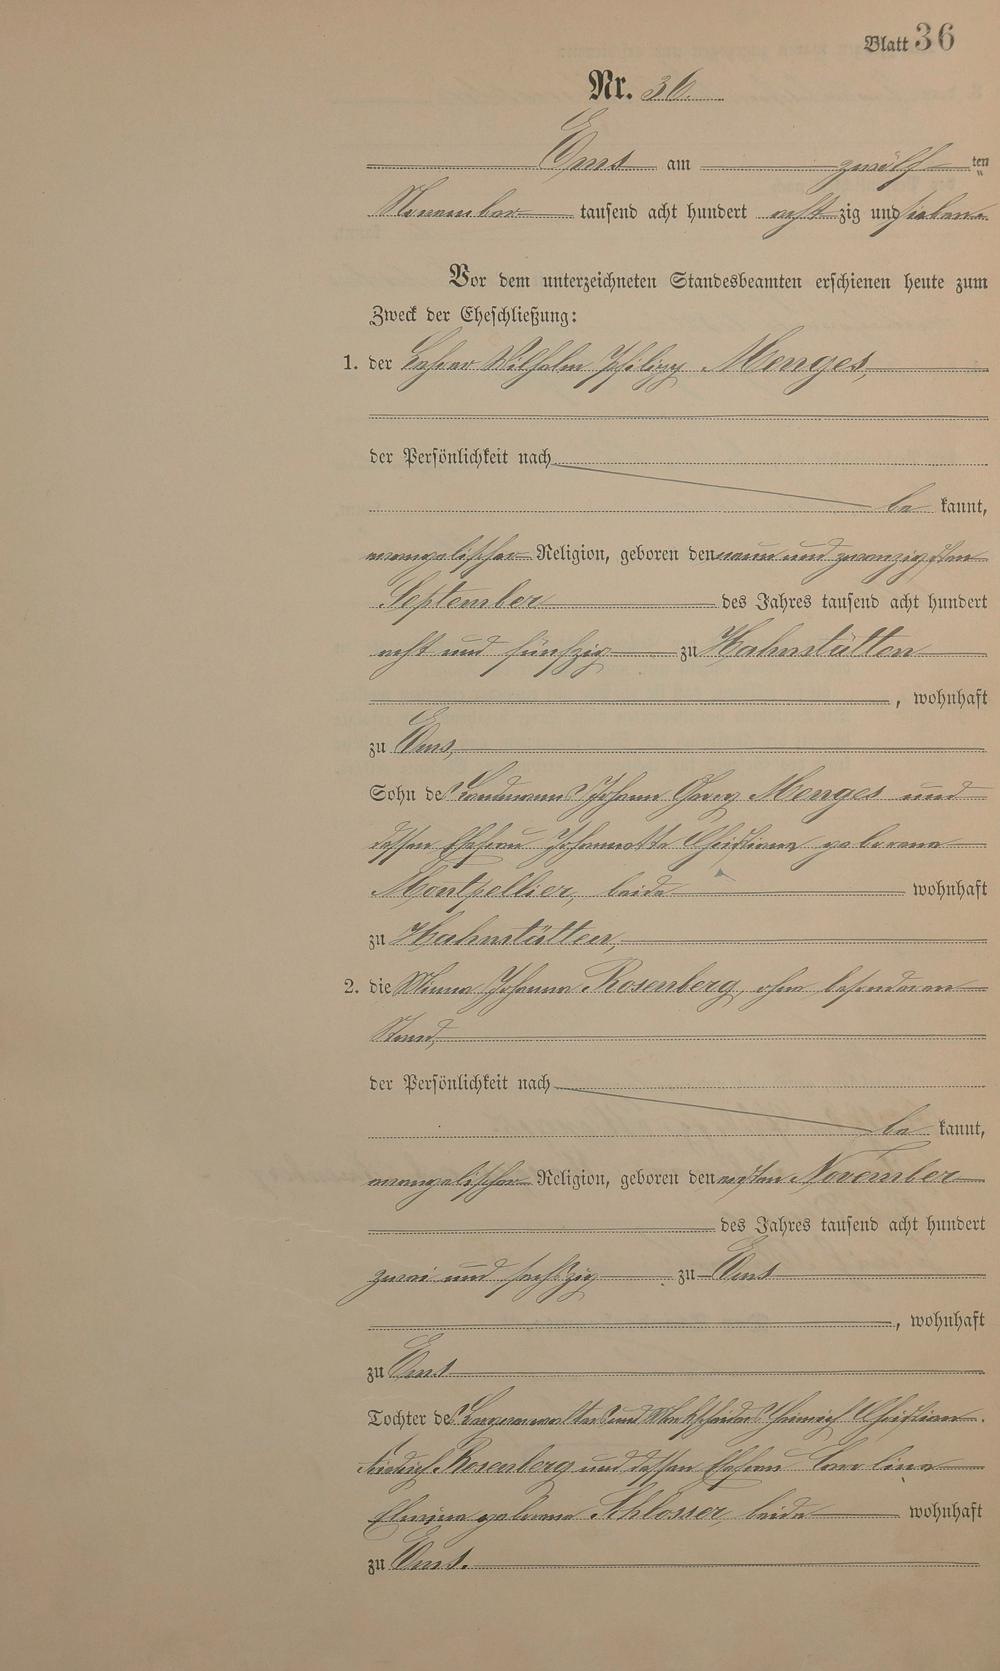 Blatt 36
Nr. 36.
Ems am zwölf ten
November tausend acht hundert acht zig und sieben
Vor dem unterzeichneten Standesbeamten erschienen heute zum
Zweck der Eheschließung:
1. der Lehrer Wilhelm Philipp Menges,
der Persönlichkeit nach
be kannt,
evangelischer Religion, geboren den neun und zwanzigsten
September des Jahres tausend acht hundert
acht und fünfzig zu Hahnstätten
, wohnhaft
zu Ems,
Sohn des Landmanns Johann Georg Menges und
dessen Ehefrau Johannette Christiane geborene
Montpellier, beide wohnhaft
zu Hahnstätten,
2. die Minna Johanna Rosenberg, ohne besonderen
Stand,
der Persönlichkeit nach
be kannt,
evangelischer Religion, geboren den ersten November
des Jahres tausend acht hundert
zwei und sechszig zu Ems
, wohnhaft
zu Ems
Tochter des und Heinrich Christian
Friedrich Rosenberg und dessen Ehefrau Caroline
geborene Schlosser, beide wohnhaft
zu Ems.